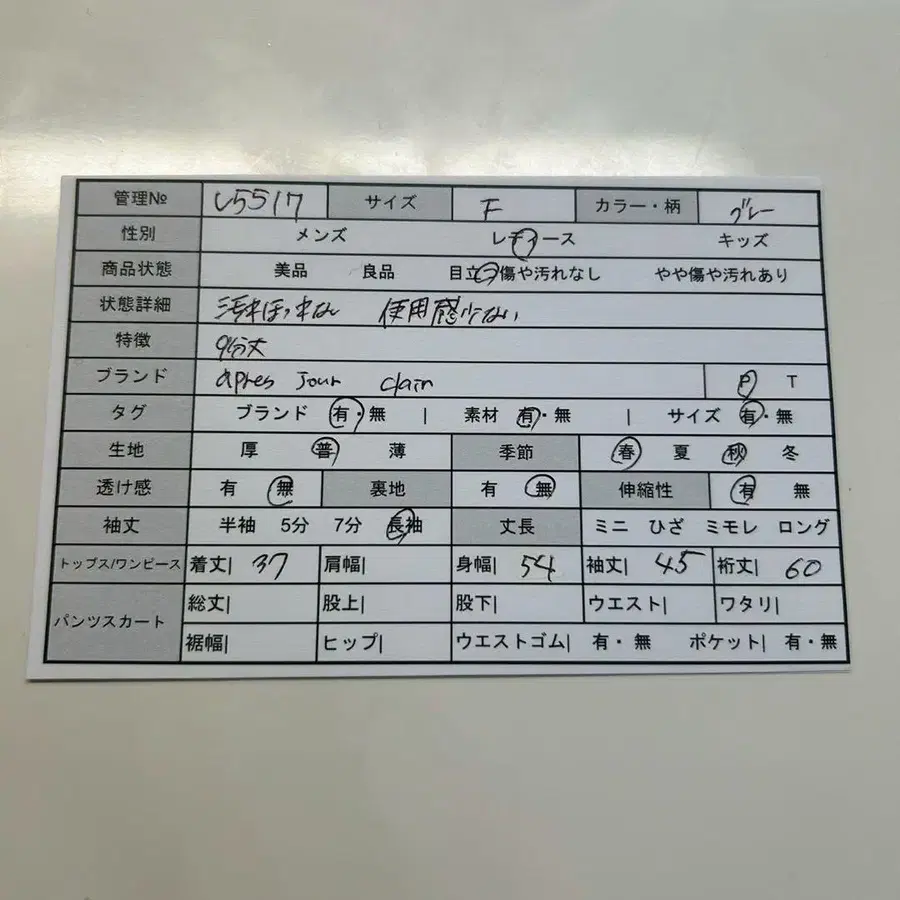 管理№ U5517 サイズ F カラー・柄 グレー
性別 メンズ レディース キッズ
商品状態 美品 良品 目立つ傷や汚れなし やや傷や汚れあり
状態詳細 汚れほつれなし 使用感少ない
特徴 9分丈
ブランド apres jour clair P T
タグ ブランド 有・無 | 素材 有・無 | サイズ 有・無
生地 厚 普 薄 季節 春 夏 秋 冬
透け感 有 無 裏地 有 無 伸縮性 有 無
袖丈 半袖 5分 7分 長袖 丈長 ミニ ひざ ミモレ ロング
トップス/ワンピース 着丈| 37 肩幅| 身幅| 54 袖丈| 45 裄丈| 60
パンツスカート 総丈| 股上| 股下| ウエスト| ワタリ|
裾幅| ヒップ| ウエストゴム| 有・無 ポケット| 有・無